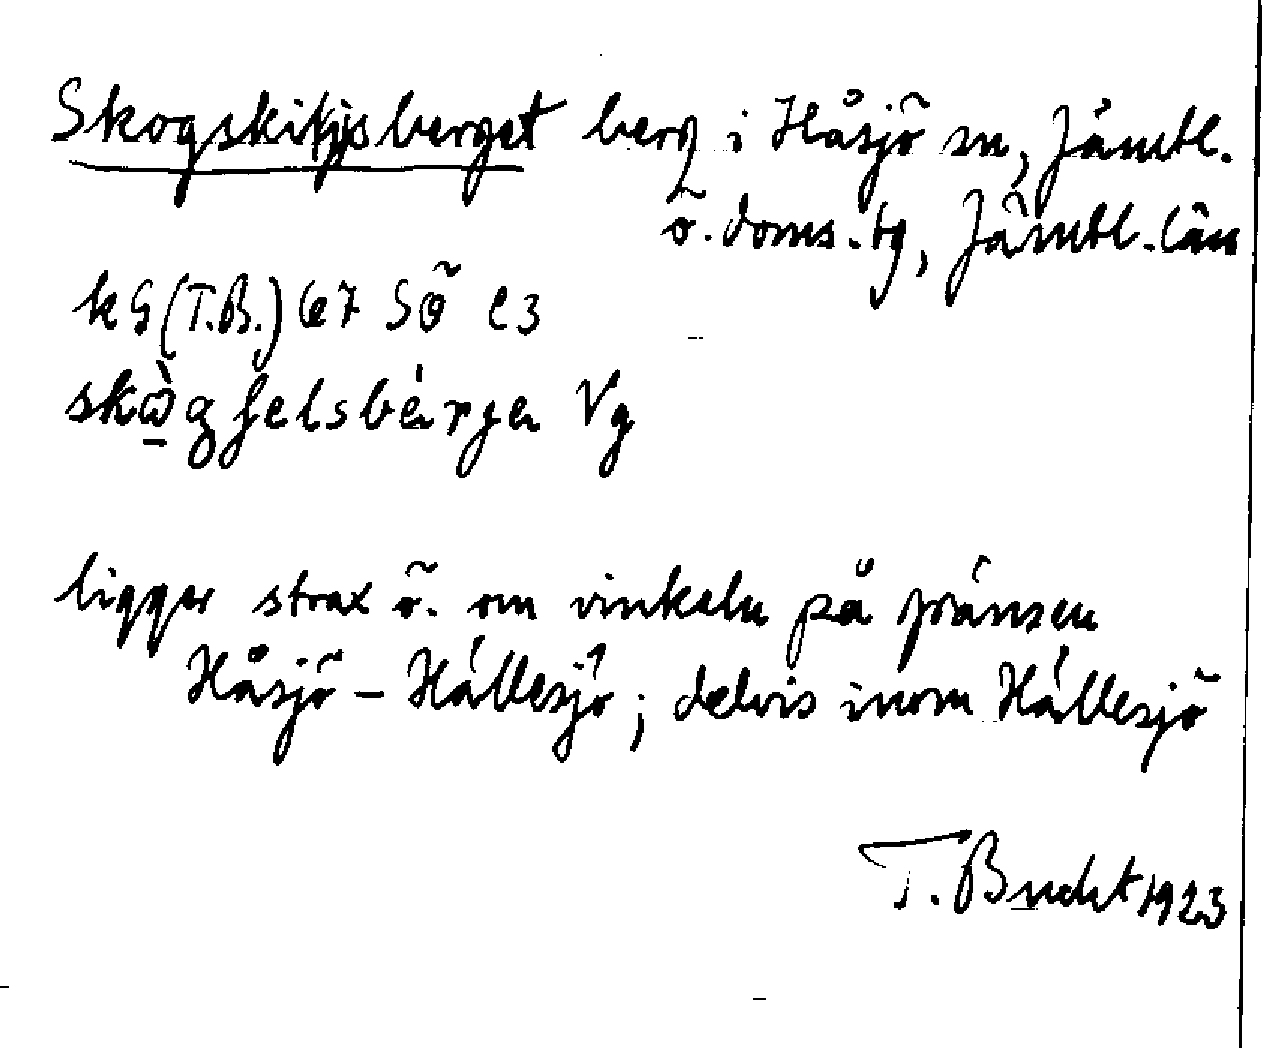 Skogskitjsberget berg i Håsjö sn, Jämtl.
ö. doms. tg, Jämtl. län
kG (T.B.) 67 SÖ e3
skὼg ʃelsbérgen Vg
ligger strax ö. om vinkeln på gränsen
Håsjö – Hällesjö ; delvis inom Hällesjö
T. Bucht 1923